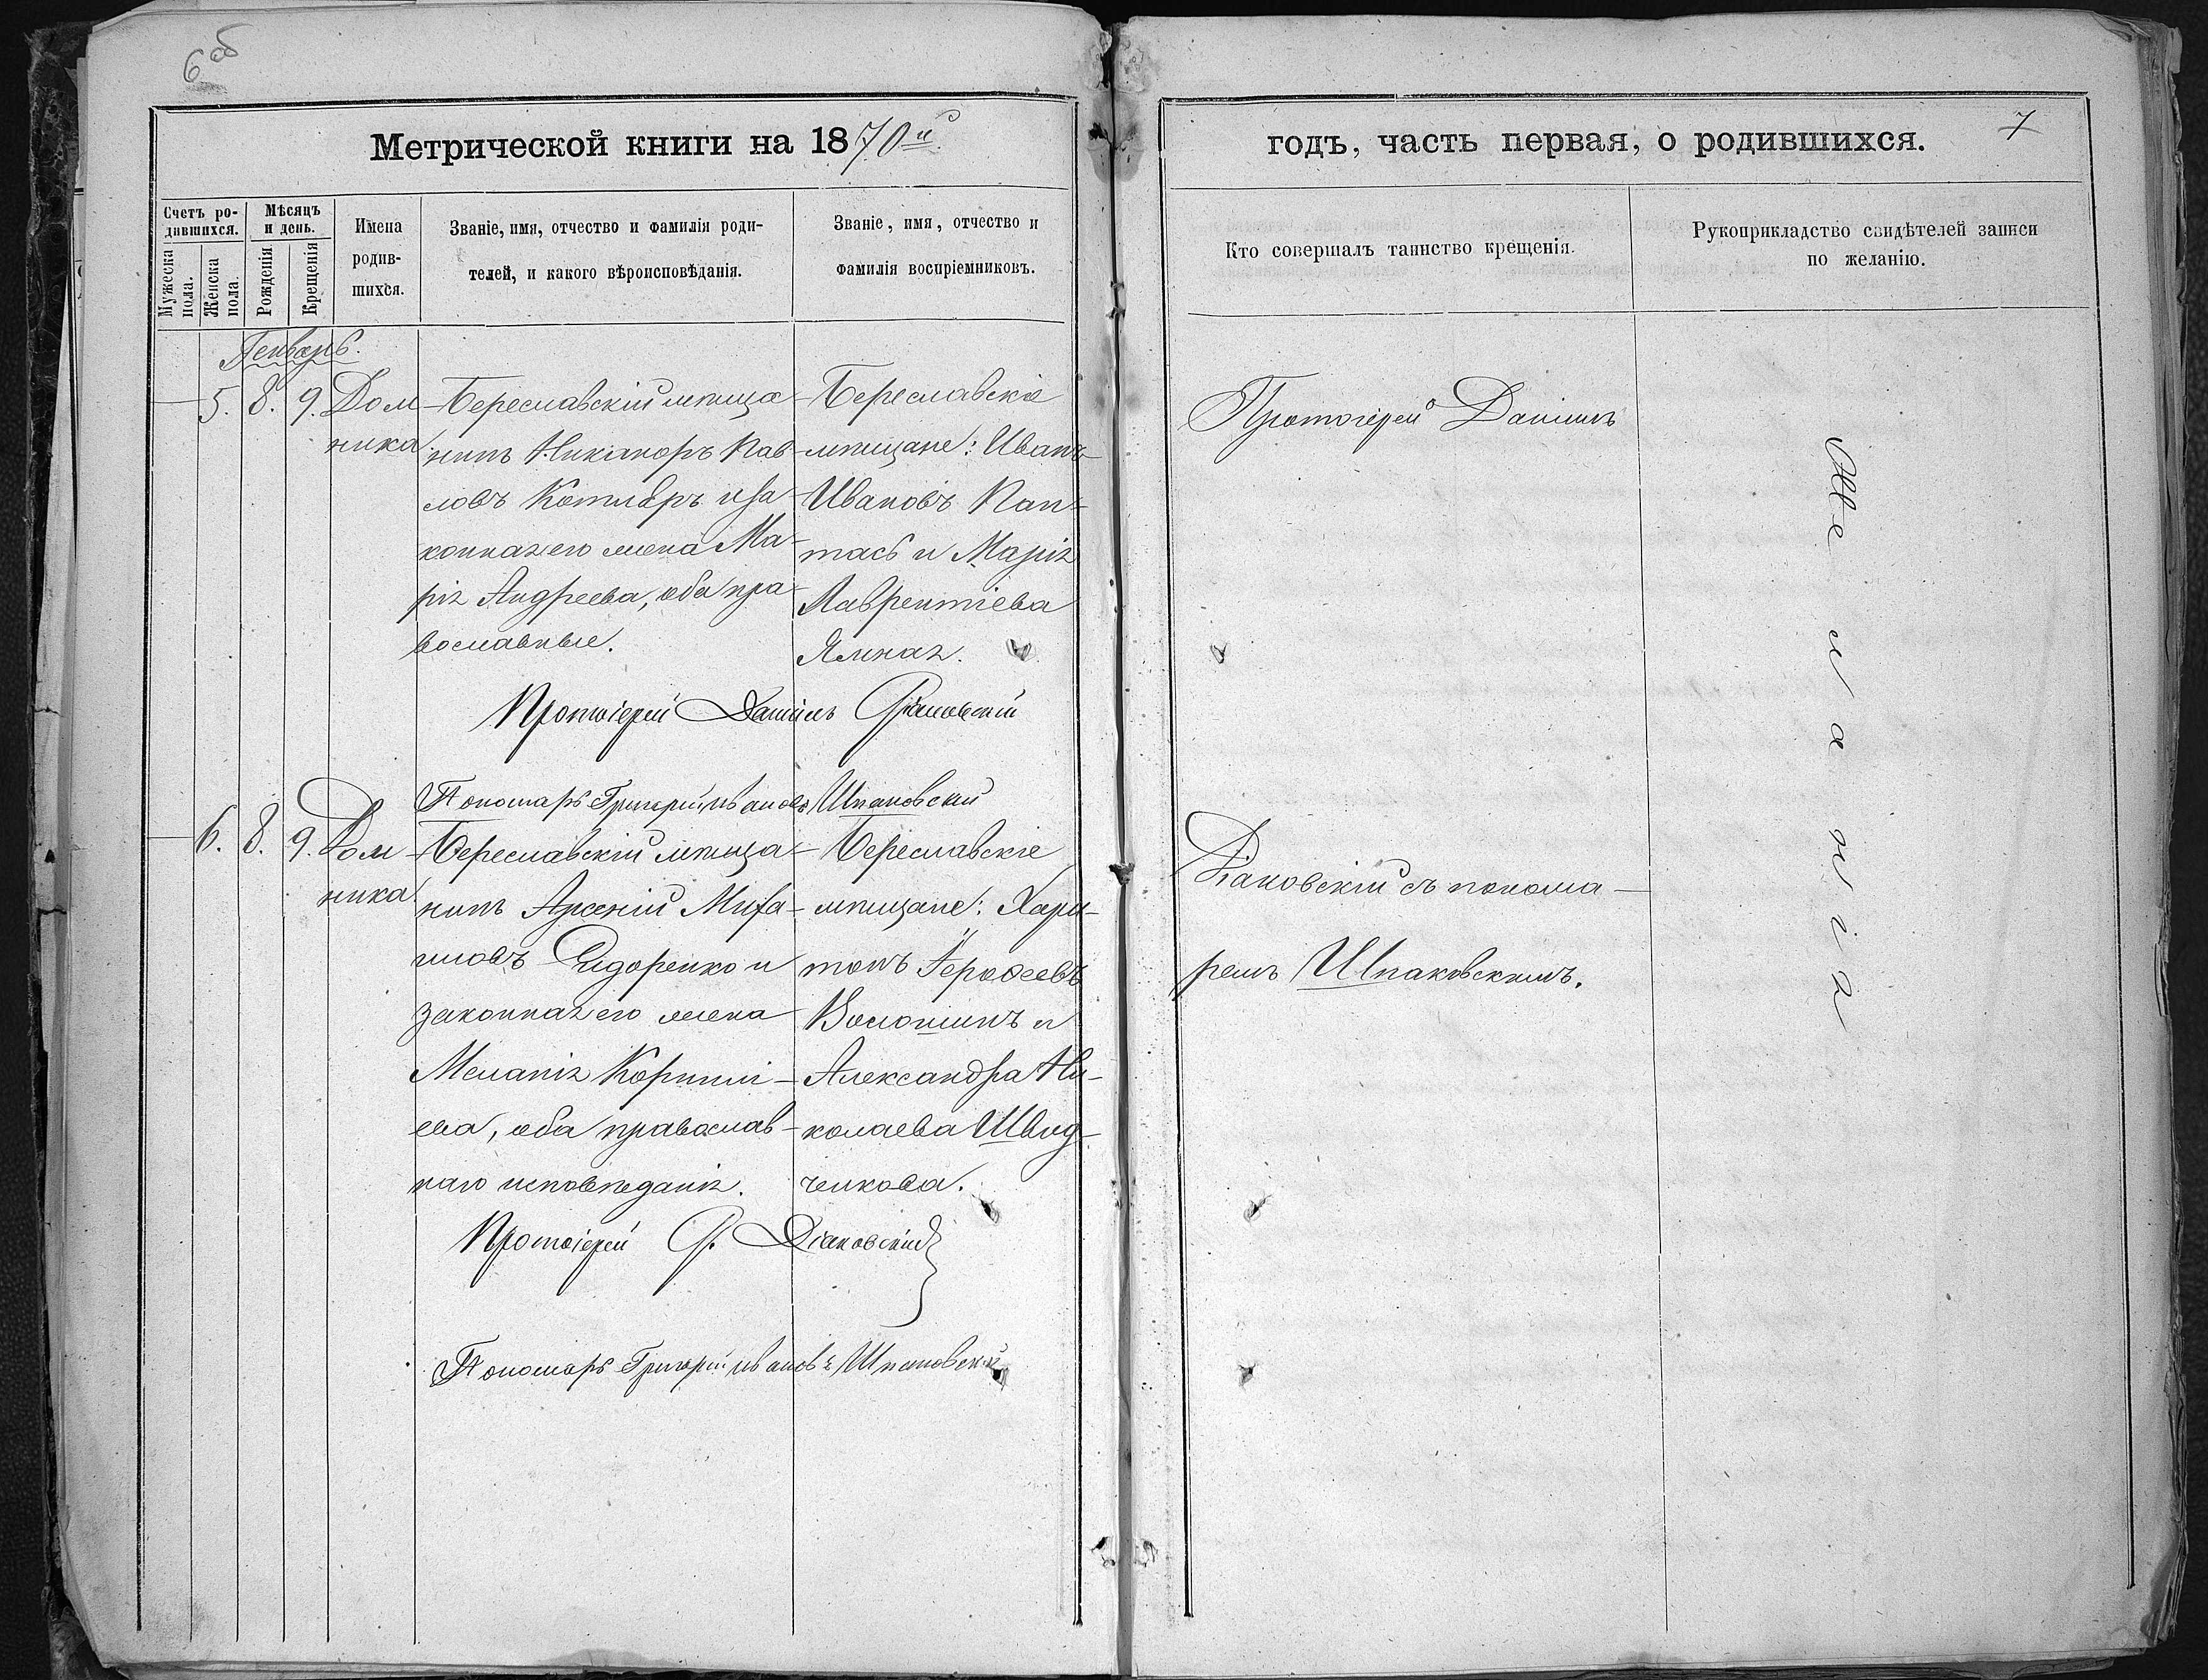 6 об
Метрической книги на 1870й
Счетъ ро-
дившихся.
Мужеска
пола.
Женска
пола.
Мѣсяцъ
и день.
Рожденія
Крещенія
Имена
родив-
шихся.
Званіе, имя, отчество и фамилія роди-
телей, и какого вѣроисповѣданія.
Званіе, имя, отчество и
фамилія воспріемниковъ.
Генварь.
5. 8. 9. Дом-
ника
Береславскій мѣща-
нинъ Никаноръ Пав-
ловъ Котляръ и за-
конная его жена Ма-
рія Андреева, оба пра-
вославные.
Береславскіе
мѣщане: Иванъ
Ивановъ Пан-
тась и Марія
Лаврентіева
Ямная.
Протоіерей Даніилъ Діаковскій
Пономарь Григорій Ивановъ Шпаковскій
6. 8. 9. Дом-
ника
Береславскій мѣща-
нинъ Арсеній Миха-
иловъ Сидоренко и
законная его жена
Меланія Корнилі-
ева, оба православ-
наго исповѣданія.
Береславскіе
мѣщане: Хари-
тонъ Іерофеевъ
Волошинъ и
Александра Ни-
колаева Швид-
ченкова.
Протоіерей Д. Діаковскій
Пономарь Григорій Ивановъ Шпаковскій
годъ, часть первая, о родившихся.
7
Кто совершалъ таинство крещенія.
Рукоприкладство свидѣтелей записи
по желанію.
Протоіерей Даніилъ
Діаковскій съ понома-
ремъ Шпаковскимъ.
Желанія